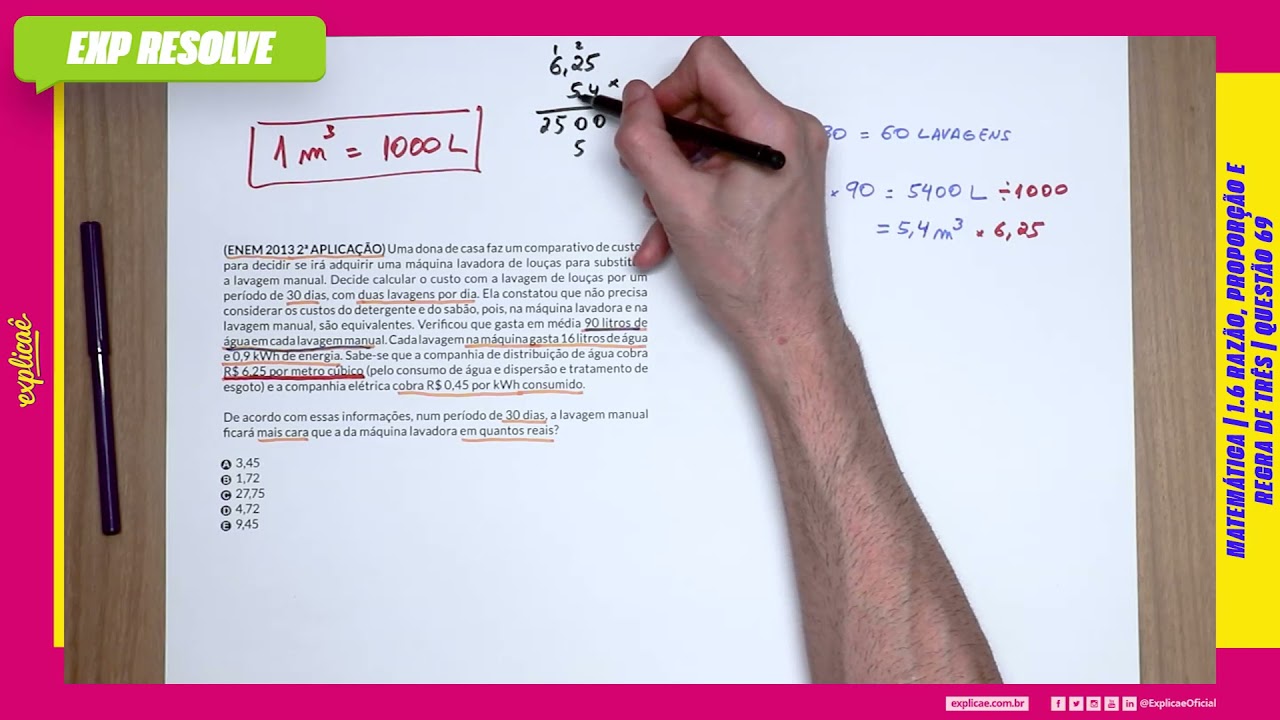 EXP RESOLVE
1 2
6,25
5,4 ×
2500
5
1 m³ = 1000 L
30 = 60 LAVAGENS
× 90 = 5400 L ÷1000
= 5,4 m³ × 6,25
(ENEM 2013 2ª APLICAÇÃO) Uma dona de casa faz um comparativo de custos
para decidir se irá adquirir uma máquina lavadora de louças para substituir
a lavagem manual. Decide calcular o custo com a lavagem de louças por um
período de 30 dias, com duas lavagens por dia. Ela constatou que não precisa
considerar os custos do detergente e do sabão, pois, na máquina lavadora e na
lavagem manual, são equivalentes. Verificou que gasta em média 90 litros de
água em cada lavagem manual. Cada lavagem na máquina gasta 16 litros de água
e 0,9 kWh de energia. Sabe-se que a companhia de distribuição de água cobra
R$ 6,25 por metro cúbico (pelo consumo de água e dispersão e tratamento de
esgoto) e a companhia elétrica cobra R$ 0,45 por kWh consumido.
De acordo com essas informações, num período de 30 dias, a lavagem manual
ficará mais cara que a da máquina lavadora em quantos reais?
A 3,45
B 1,72
C 27,75
D 4,72
E 9,45
explicaê
MATEMÁTICA | 1.6 RAZÃO, PROPORÇÃO E
REGRA DE TRÊS | QUESTÃO 69
explicae.com.br
@ExplicaeOficial